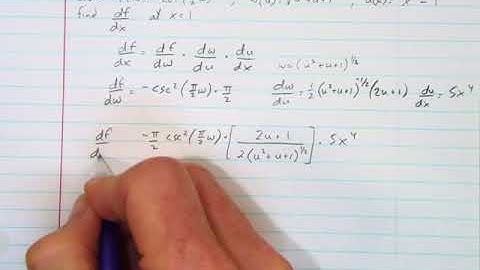 find df/dx at x=1
df/dx = df/dw · dw/du · du/dx w=(u²+u+1)^1/2
df/dw = -csc²(π/2 w)·π/2 dw/du = 1/2(u²+u+1)^-1/2(2u+1) du/dx = 5x⁴
df/d -π/2 csc²(π/2 w)·[2u+1/2(u²+u+1)^1/2]·5x⁴